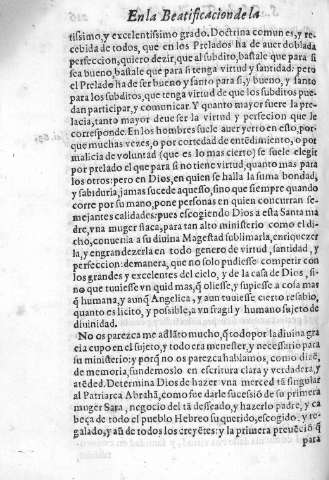 En la Beatificacion de la
tissimo, y excelentissimo grado. Doctrina comun es, y re-
cebida de todos, que en los Prelados ha de auer doblada
perfeccion, quiero dezir, que al subdito, bastale que para si
sea bueno, bastale que para si tenga virtud y santidad: pero
el Prelado ha de ser bueno y santo para si, y bueno, y santo
para los subditos, que tenga virtud de que los subditos pue-
dan participar, y comunicar. Y quanto mayor fuere la pre-
lacia, tanto mayor deue ser la virtud y perfeccion que le
corresponde. En los hombres suele auer yerro en esto, por-
que muchas vezes, o por cortedad de entēdimiento, o por
malicia de voluntad (que es lo mas cierto) se suele elegir
por prelado el que para si no tiene virtud, quanto mas para
los otros: pero en Dios, en quien se halla la suma bondad,
y sabiduria, jamas sucede aquesso, sino que siempre quando
corre por su mano, pone personas en quien concurran se-
mejantes calidades: pues escogiendo Dios a esta Santa ma
dre, vna muger flaca, para tan alto ministerio como el di-
cho, conuenia a su diuina Magestad sublimarla, enriquezer
la, y engrandezerla en todo genero de virtud, santidad, y
perfeccion: demanera, que no solo pudiesse competir con
los grandes y excelentes del cielo, y de la casa de Dios, si-
no que tuuiesse vn quid mas, q̃ oliesse, y supiesse a cosa mas
q̃ humana, y aunq̃ Angelica, y aun tuuiesse cierto resabio,
quanto es licito, y possible, a vn fragil y humano sujeto de
diuinidad.
No os parezca me adlāto mucho, q̃ todo por la diuina gra
cia cupo en el sujeto, y todo era menester, y necessario para
su ministerio: y porq̃ no os parezca hablamos, como dizē,
de memoria, fundemoslo en escritura clara y verdadera, y
atēded. Determina Dios de hazer vna merced tā singular
al Patriarca Abrahā, como fue darle sucessiō de su primera
muger Sara, negocio del tā desseado, y hazerlo padre, y ca
beça de todo el pueblo Hebreo su querido, escogido, y re-
galado, y aū de todos los creyētes: y la primera preuēciō q̃
para